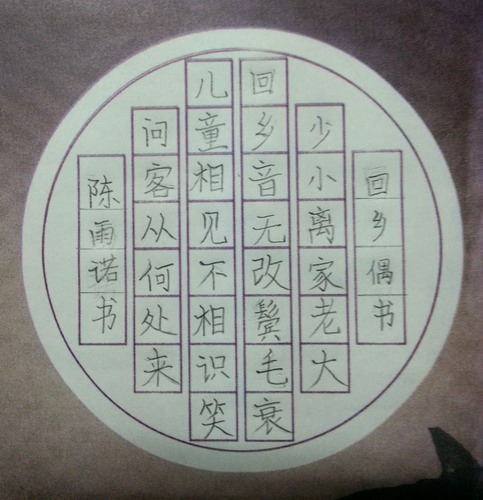 回乡偶书
少小离家老大
回乡音无改鬓毛衰
儿童相见不相识笑
问客从何处来
陈雨诺书